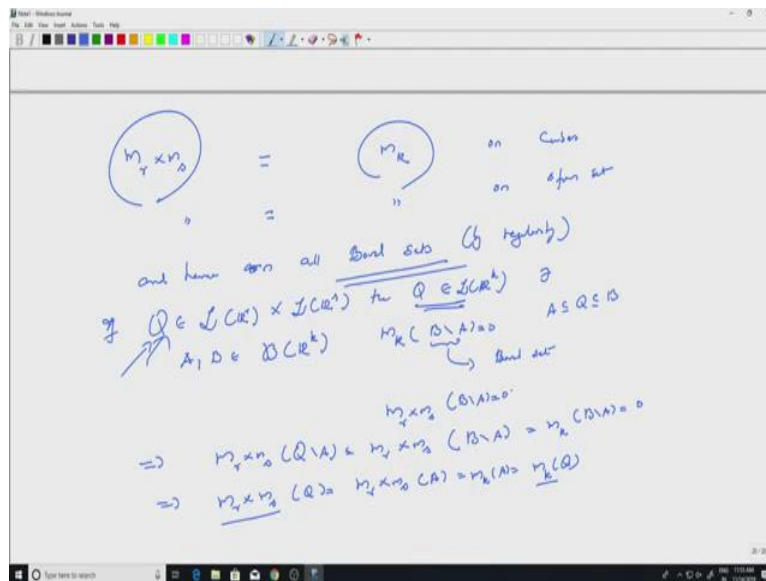 Note1 - Windows Journal
File Edit View Insert Actions Tools Help
m_r × m_s = m_k on Cubes
" = " on open set
and hence on all Borel sets (by regularity)
If Q ∈ L(R^r) × L(R^s) the Q ∈ L(R^k) ∃
A, B ∈ B(R^k) m_k(B\A)=0 A ⊆ Q ⊆ B
Borel set
m_r × m_s (B\A)=0.
⇒ m_r × m_s (Q\A) ≤ m_r × m_s (B\A) = m_k (B\A) = 0
⇒ m_r × m_s (Q) = m_r × m_s (A) = m_k(A) = m_k(Q)
Type here to search